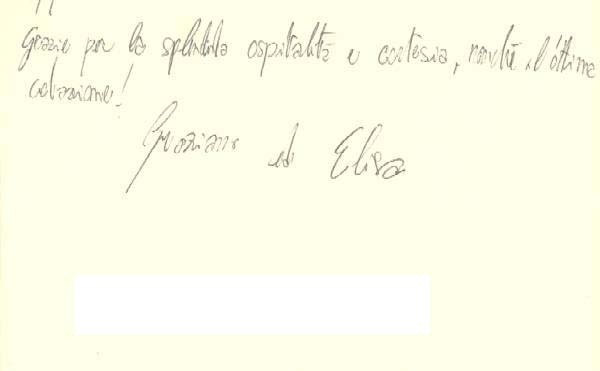 Grazie per la splendida ospitalità e cortesia, nonché l'ottima
colazione!
Graziano ed Elisa